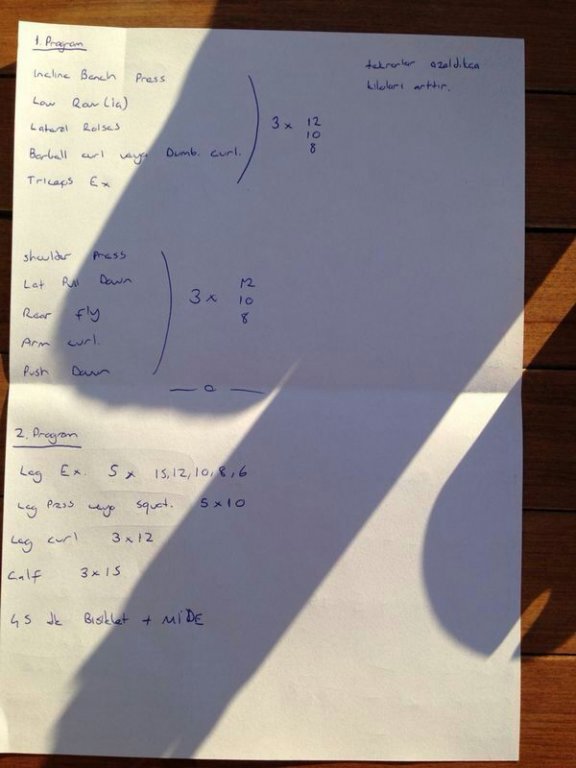 1. Program
tekrarlar azaldıkca
kiloları arttır.
Incline Bench Press
Low Row (1a)
Lateral Raises
Barbell curl veya Dumb. curl.
Triceps Ex
3 x 12
10
8
shoulder Press
Lat Pull Down
Rear fly
Arm curl.
Push Down
3 x 12
10
8
— o —
2. Program
Leg Ex. 5 x 15,12,10,8,6
Leg Press veya Squat. 5x10
Leg curl 3x12
Calf 3x15
45 dk Bisiklet + MİDE